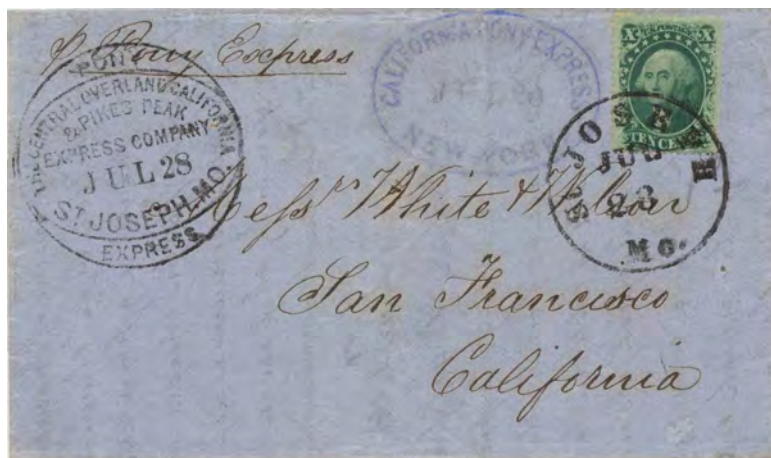 p Pony Express
PONY
THE CENTRAL OVERLAND CALIFORNIA
& PIKES PEAK
EXPRESS COMPANY
JUL 28
ST. JOSEPH, MO.
EXPRESS
CALIFORNIA PONY EXPRESS
NEW YORK
X X
TEN CE
ST JOSEPH
28
MO.
Messrs White &
San Francisco
California